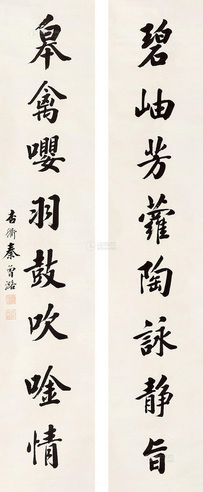 碧岫芳蘿陶詠静旨
皋禽嚶羽鼓吹唫情
杏衢秦曾潞